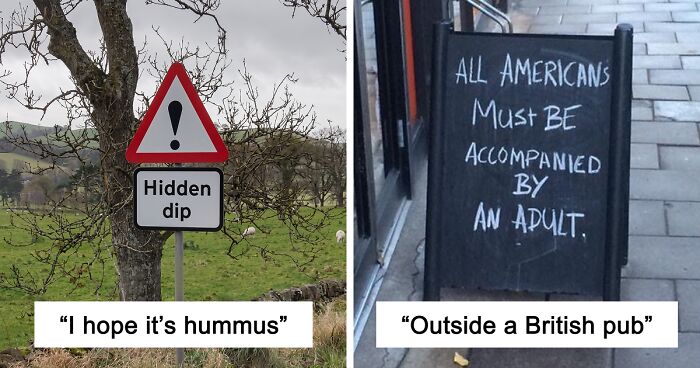 Hidden
dip
“I hope it’s hummus”
ALL AMERICANS
MUST BE
ACCOMPANIED
BY
AN ADULT.
“Outside a British pub”